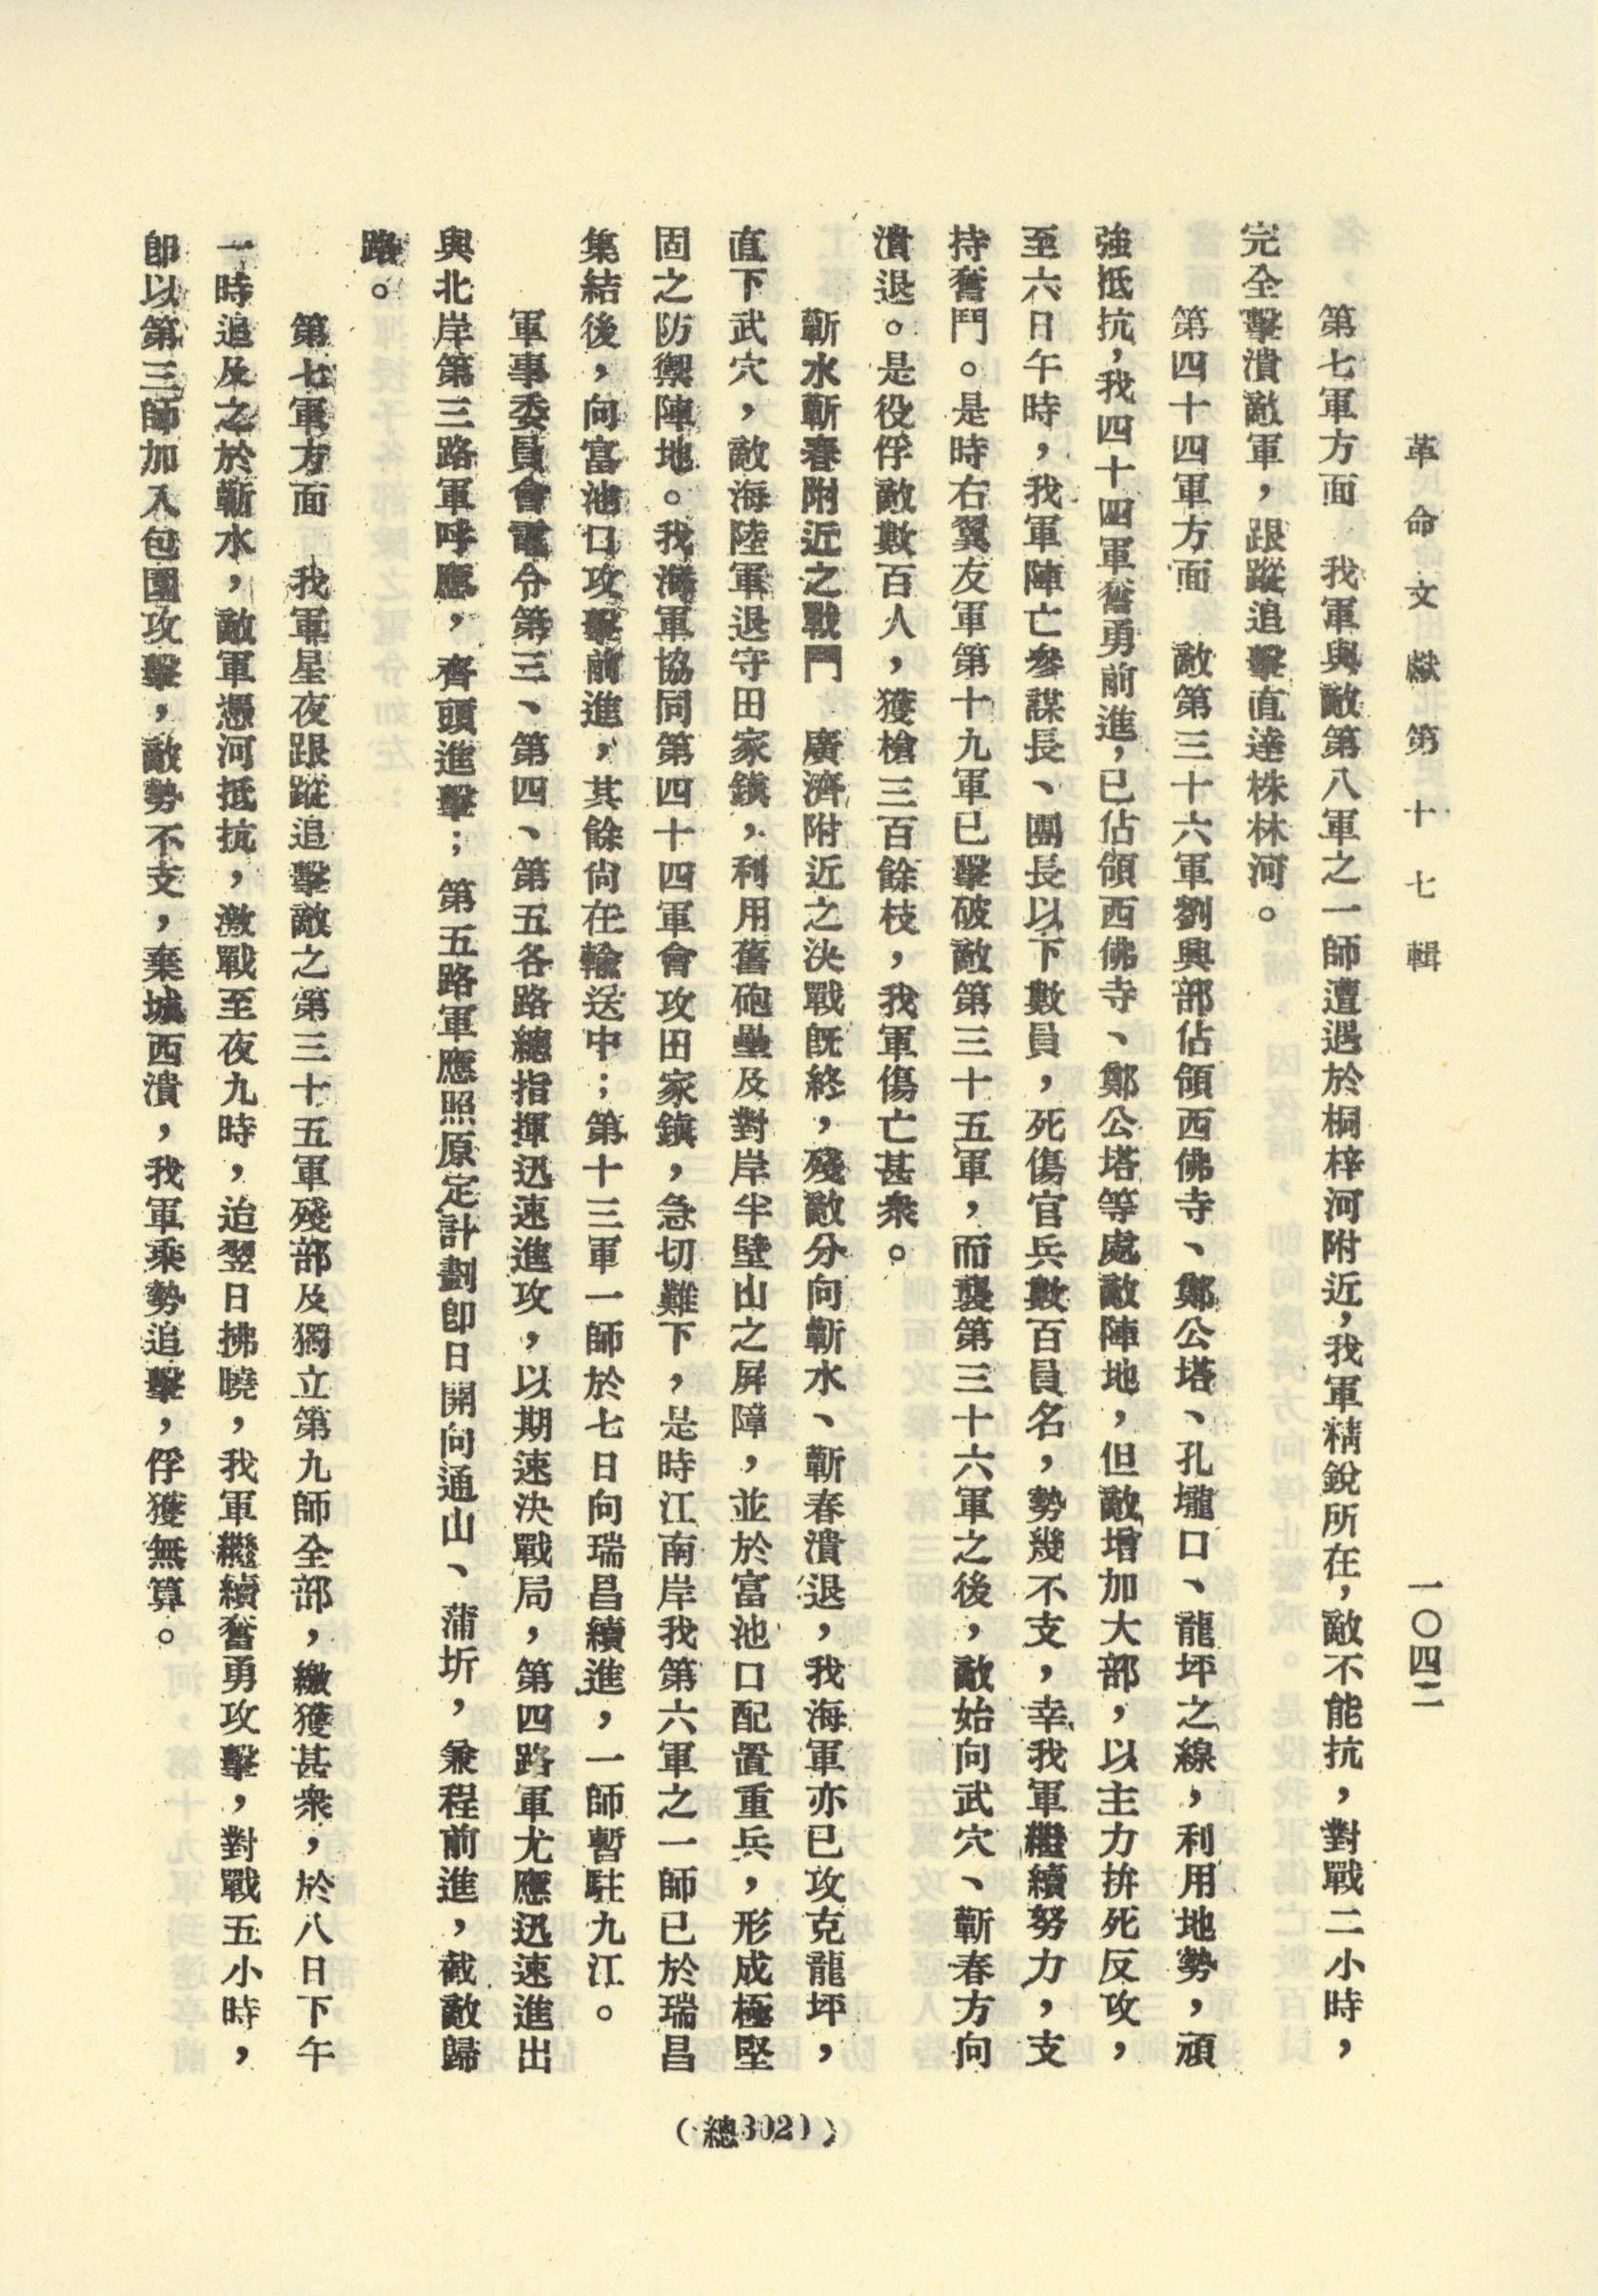 革命文獻第十七輯
一〇四二
第七軍方面　我軍與敵第八軍之一師遭遇於桐梓河附近，我軍精銳所在，敵不能抗，對戰二小時，
完全擊潰敵軍，跟蹤追擊直達株林河。
第四十四軍方面　敵第三十六軍劉興部佔領西佛寺、鄭公塔、孔壠口、龍坪之線，利用地勢，頑
強抵抗，我四十四軍奮勇前進，已佔領西佛寺、鄭公塔等處敵陣地，但敵增加大部，以主力拚死反攻，
至六日午時，我軍陣亡參謀長、團長以下數員，死傷官兵數百員名，勢幾不支，幸我軍繼續努力，支
持奮鬥。是時右翼友軍第十九軍已擊破敵第三十五軍，而襲第三十六軍之後，敵始向武穴、蘄春方向
潰退。是役俘敵數百人，獲槍三百餘枝，我軍傷亡甚衆。
蘄水蘄春附近之戰鬥　廣濟附近之決戰既終，殘敵分向蘄水、蘄春潰退，我海軍亦已攻克龍坪，
直下武穴，敵海陸軍退守田家鎮，利用舊砲壘及對岸半壁山之屏障，並於富池口配置重兵，形成極堅
固之防禦陣地。我海軍協同第四十四軍會攻田家鎮，急切難下，是時江南岸我第六軍之一師已於瑞昌
集結後，向富池口攻擊前進，其餘尙在輸送中；第十三軍一師於七日向瑞昌續進，一師暫駐九江。
軍事委員會電令第三、第四、第五各路總指揮迅速進攻，以期速決戰局，第四路軍尤應迅速進出
與北岸第三路軍呼應，齊頭進擊；第五路軍應照原定計劃卽日開向通山、蒲圻，兼程前進，截敵歸
路。
第七軍方面　我軍星夜跟蹤追擊敵之第三十五軍殘部及獨立第九師全部，繳獲甚衆，於八日下午
一時追及之於蘄水，敵軍憑河抵抗，激戰至夜九時，迨翌日拂曉，我軍繼續奮勇攻擊，對戰五小時，
卽以第三師加入包圍攻擊，敵勢不支，棄城西潰，我軍乘勢追擊，俘獲無算。
（總3021）